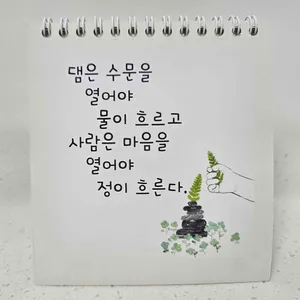 댐은 수문을
열어야
물이 흐르고
사람은 마음을
열어야
정이 흐른다.